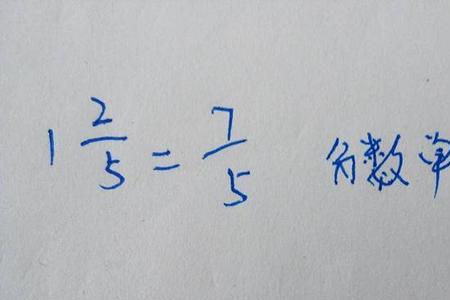 1 2/5 = 7/5 分数单